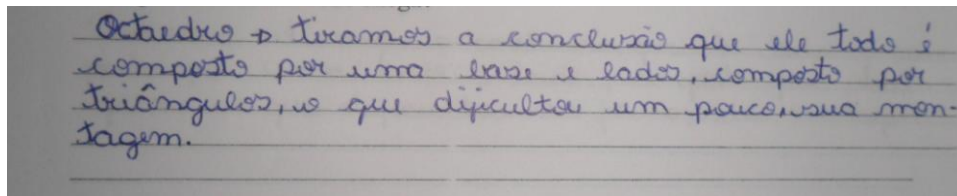 Octaedro → tiramos a conclusão que ele todo é
composto por uma base e lados, composto por
triângulos, o que dificultou um pouco, sua mon-
tagem.